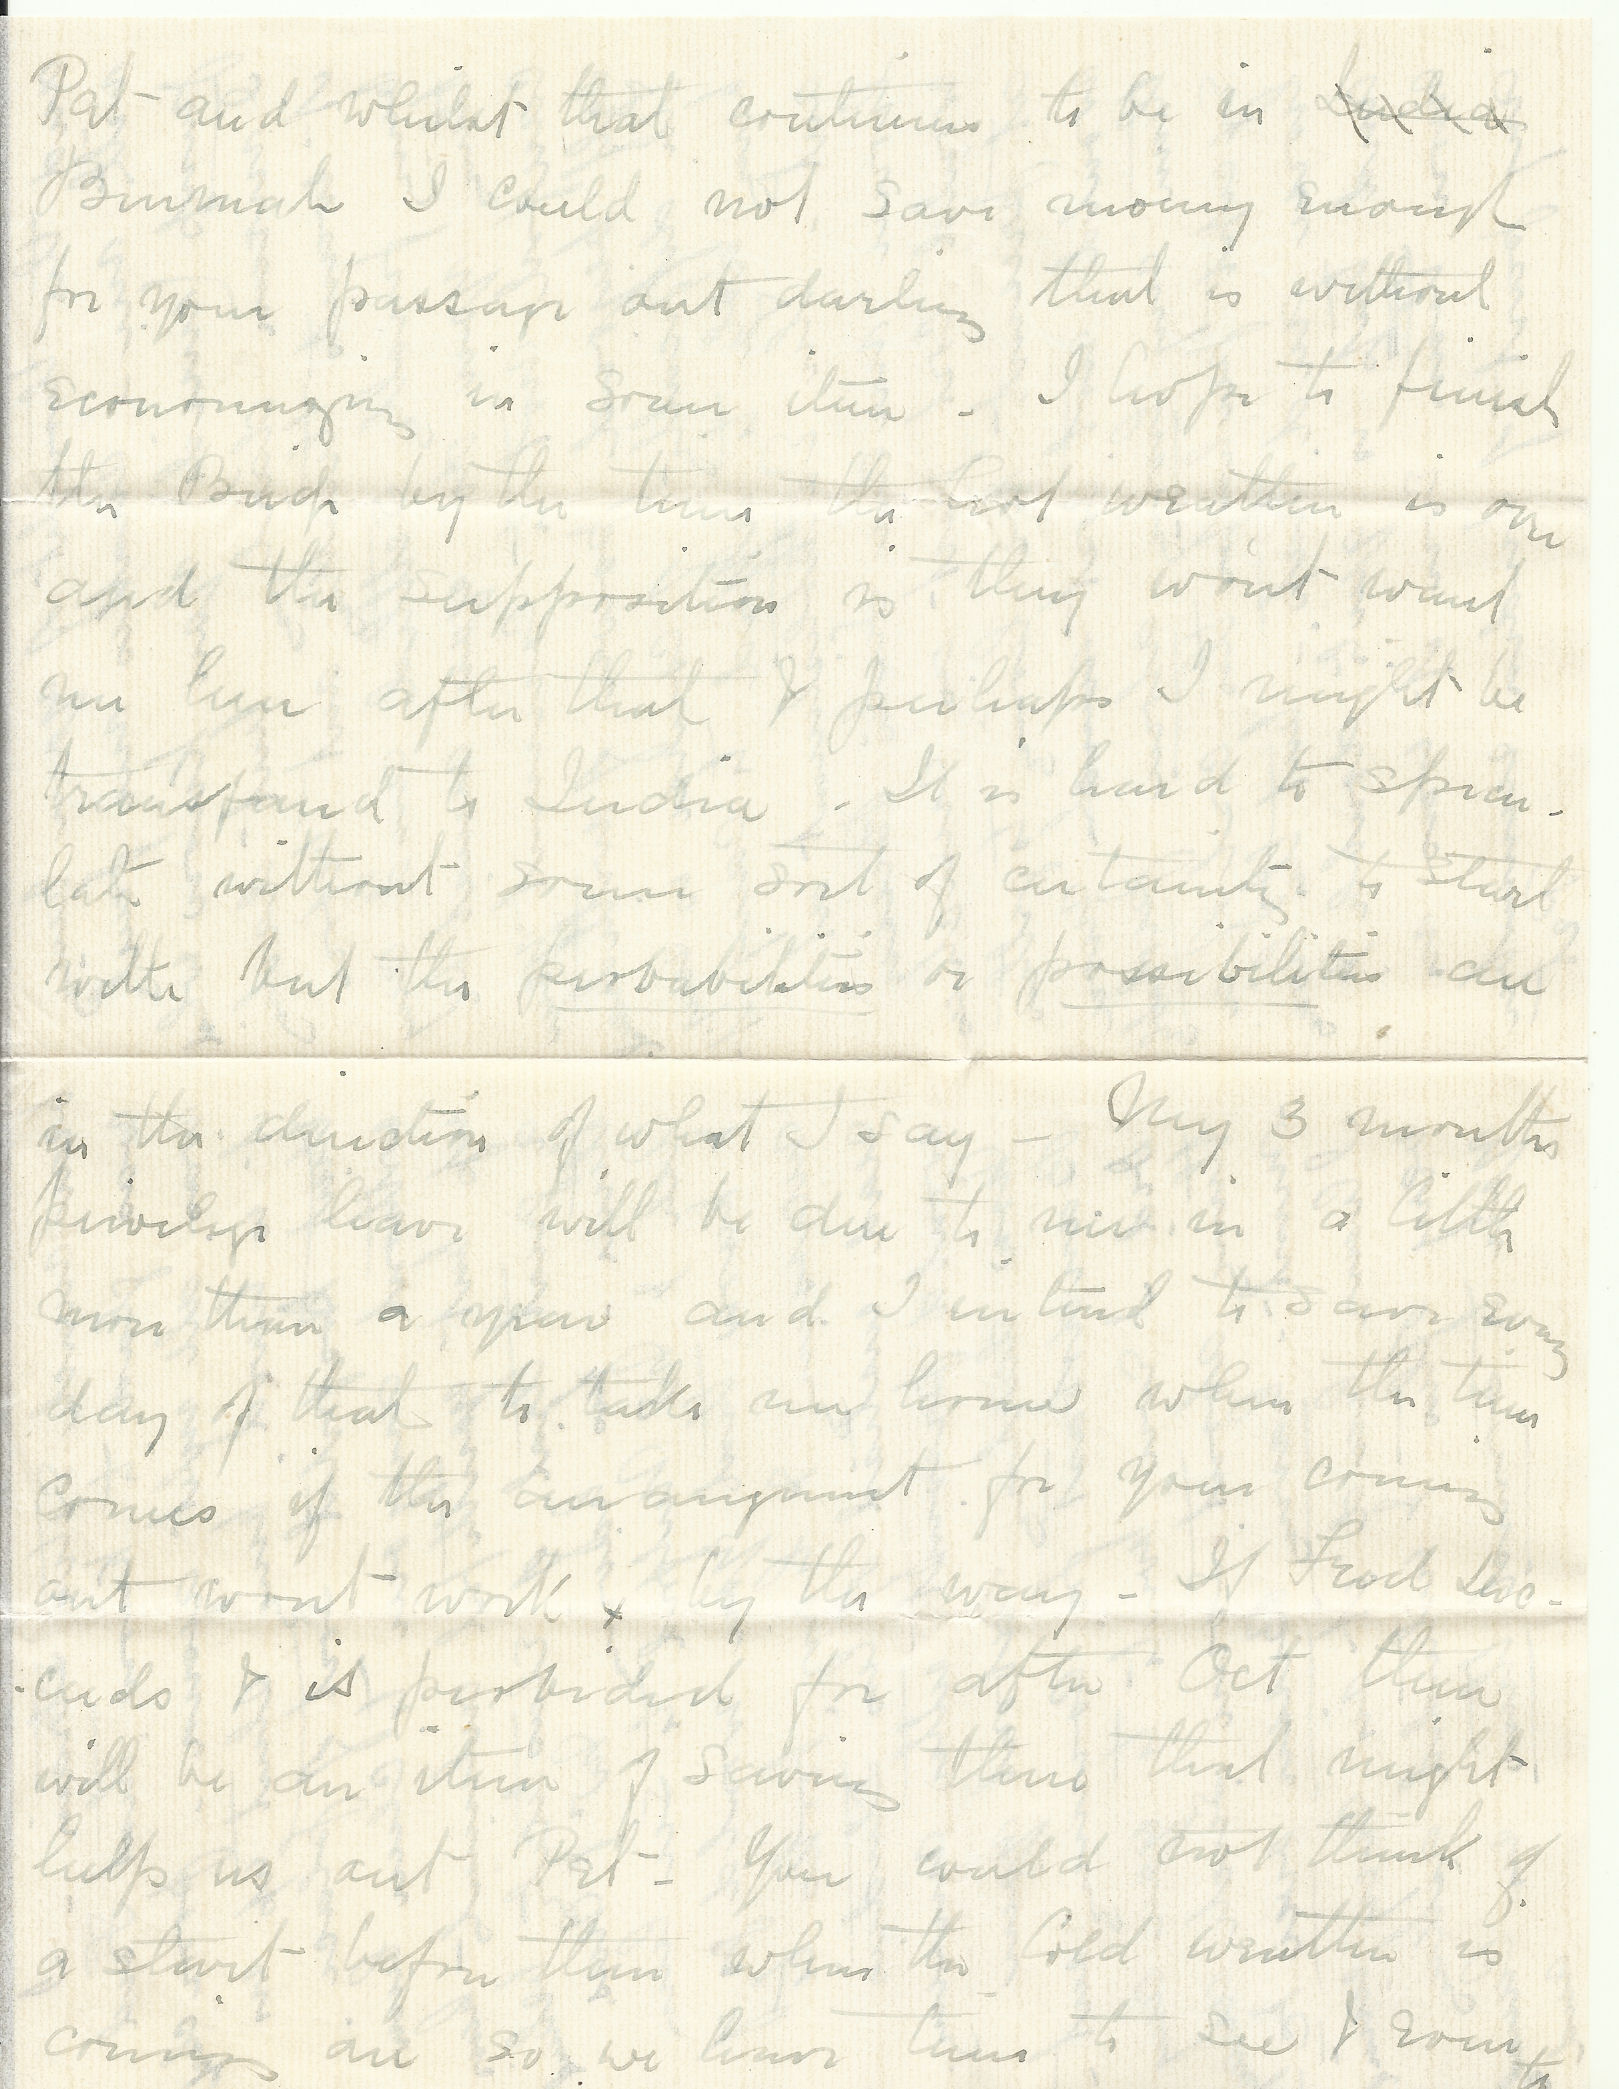 Pat and whilst that continues to be in India
Burmah I could not save money enough
for your passage out darling that is without
economizing in some item - I hope to finish
the Bridge by the time the hot weather is over
and the supposition is they wont want
me here after that & perhaps I might be
transferred to India - It is hard to specu-
late without some sort of certainty to start
with but the probabilities or possibilities are
in the direction of what I say - My 3 months
privilege leave will be due to me in a little
more than a year and I intend to save every
day of that to take me home when the time
comes if the arrangement for your coming
out wont work x by the way - If Fred Suc-
ceeds & is provided for after Oct there
will be an item of saving there that might
help us out Pet - You could not think of
a start before then when the Cold weather is
coming on so we have time to see & even
to